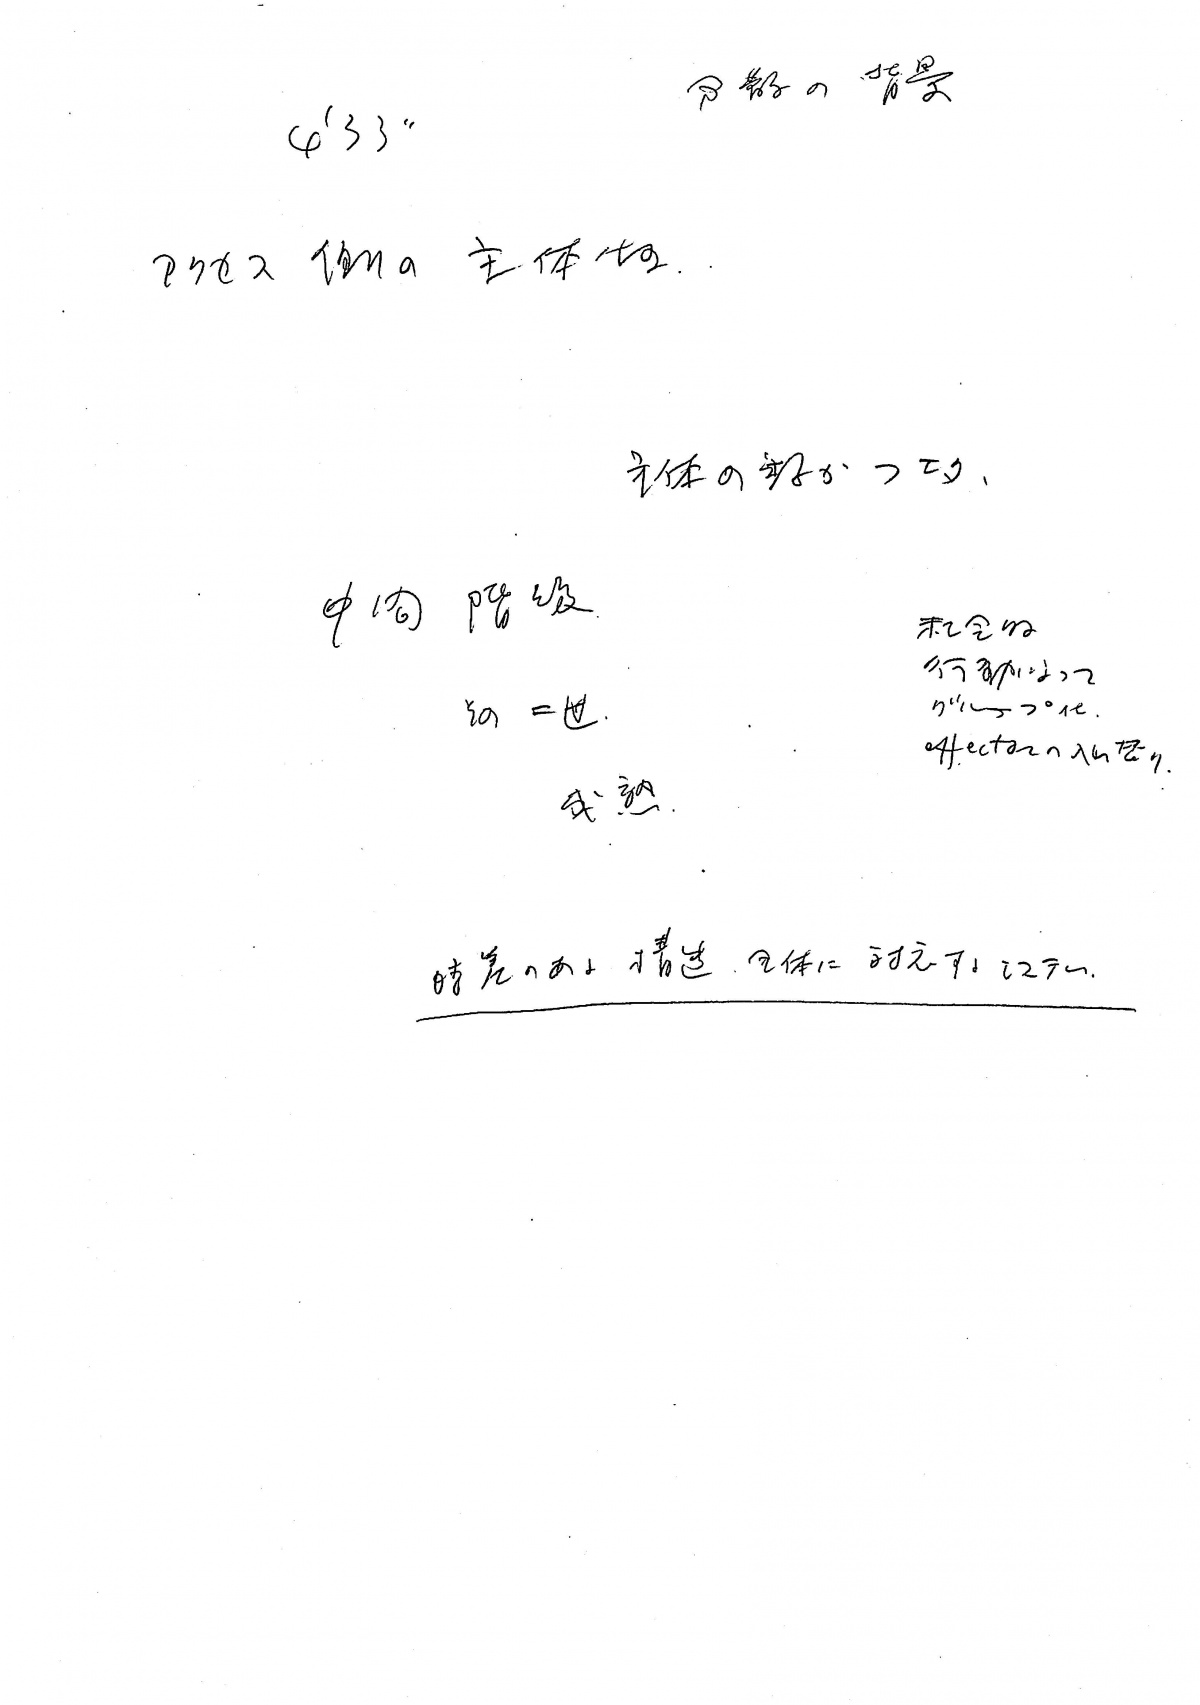 の背景
4'33"
アクセス側の主体性..
主体の
中間階級
その二世.
成熟.
社会的
行動によって
グループ化.
effectorの入れ替り.
時差のある構造.全体に対応するシステム.